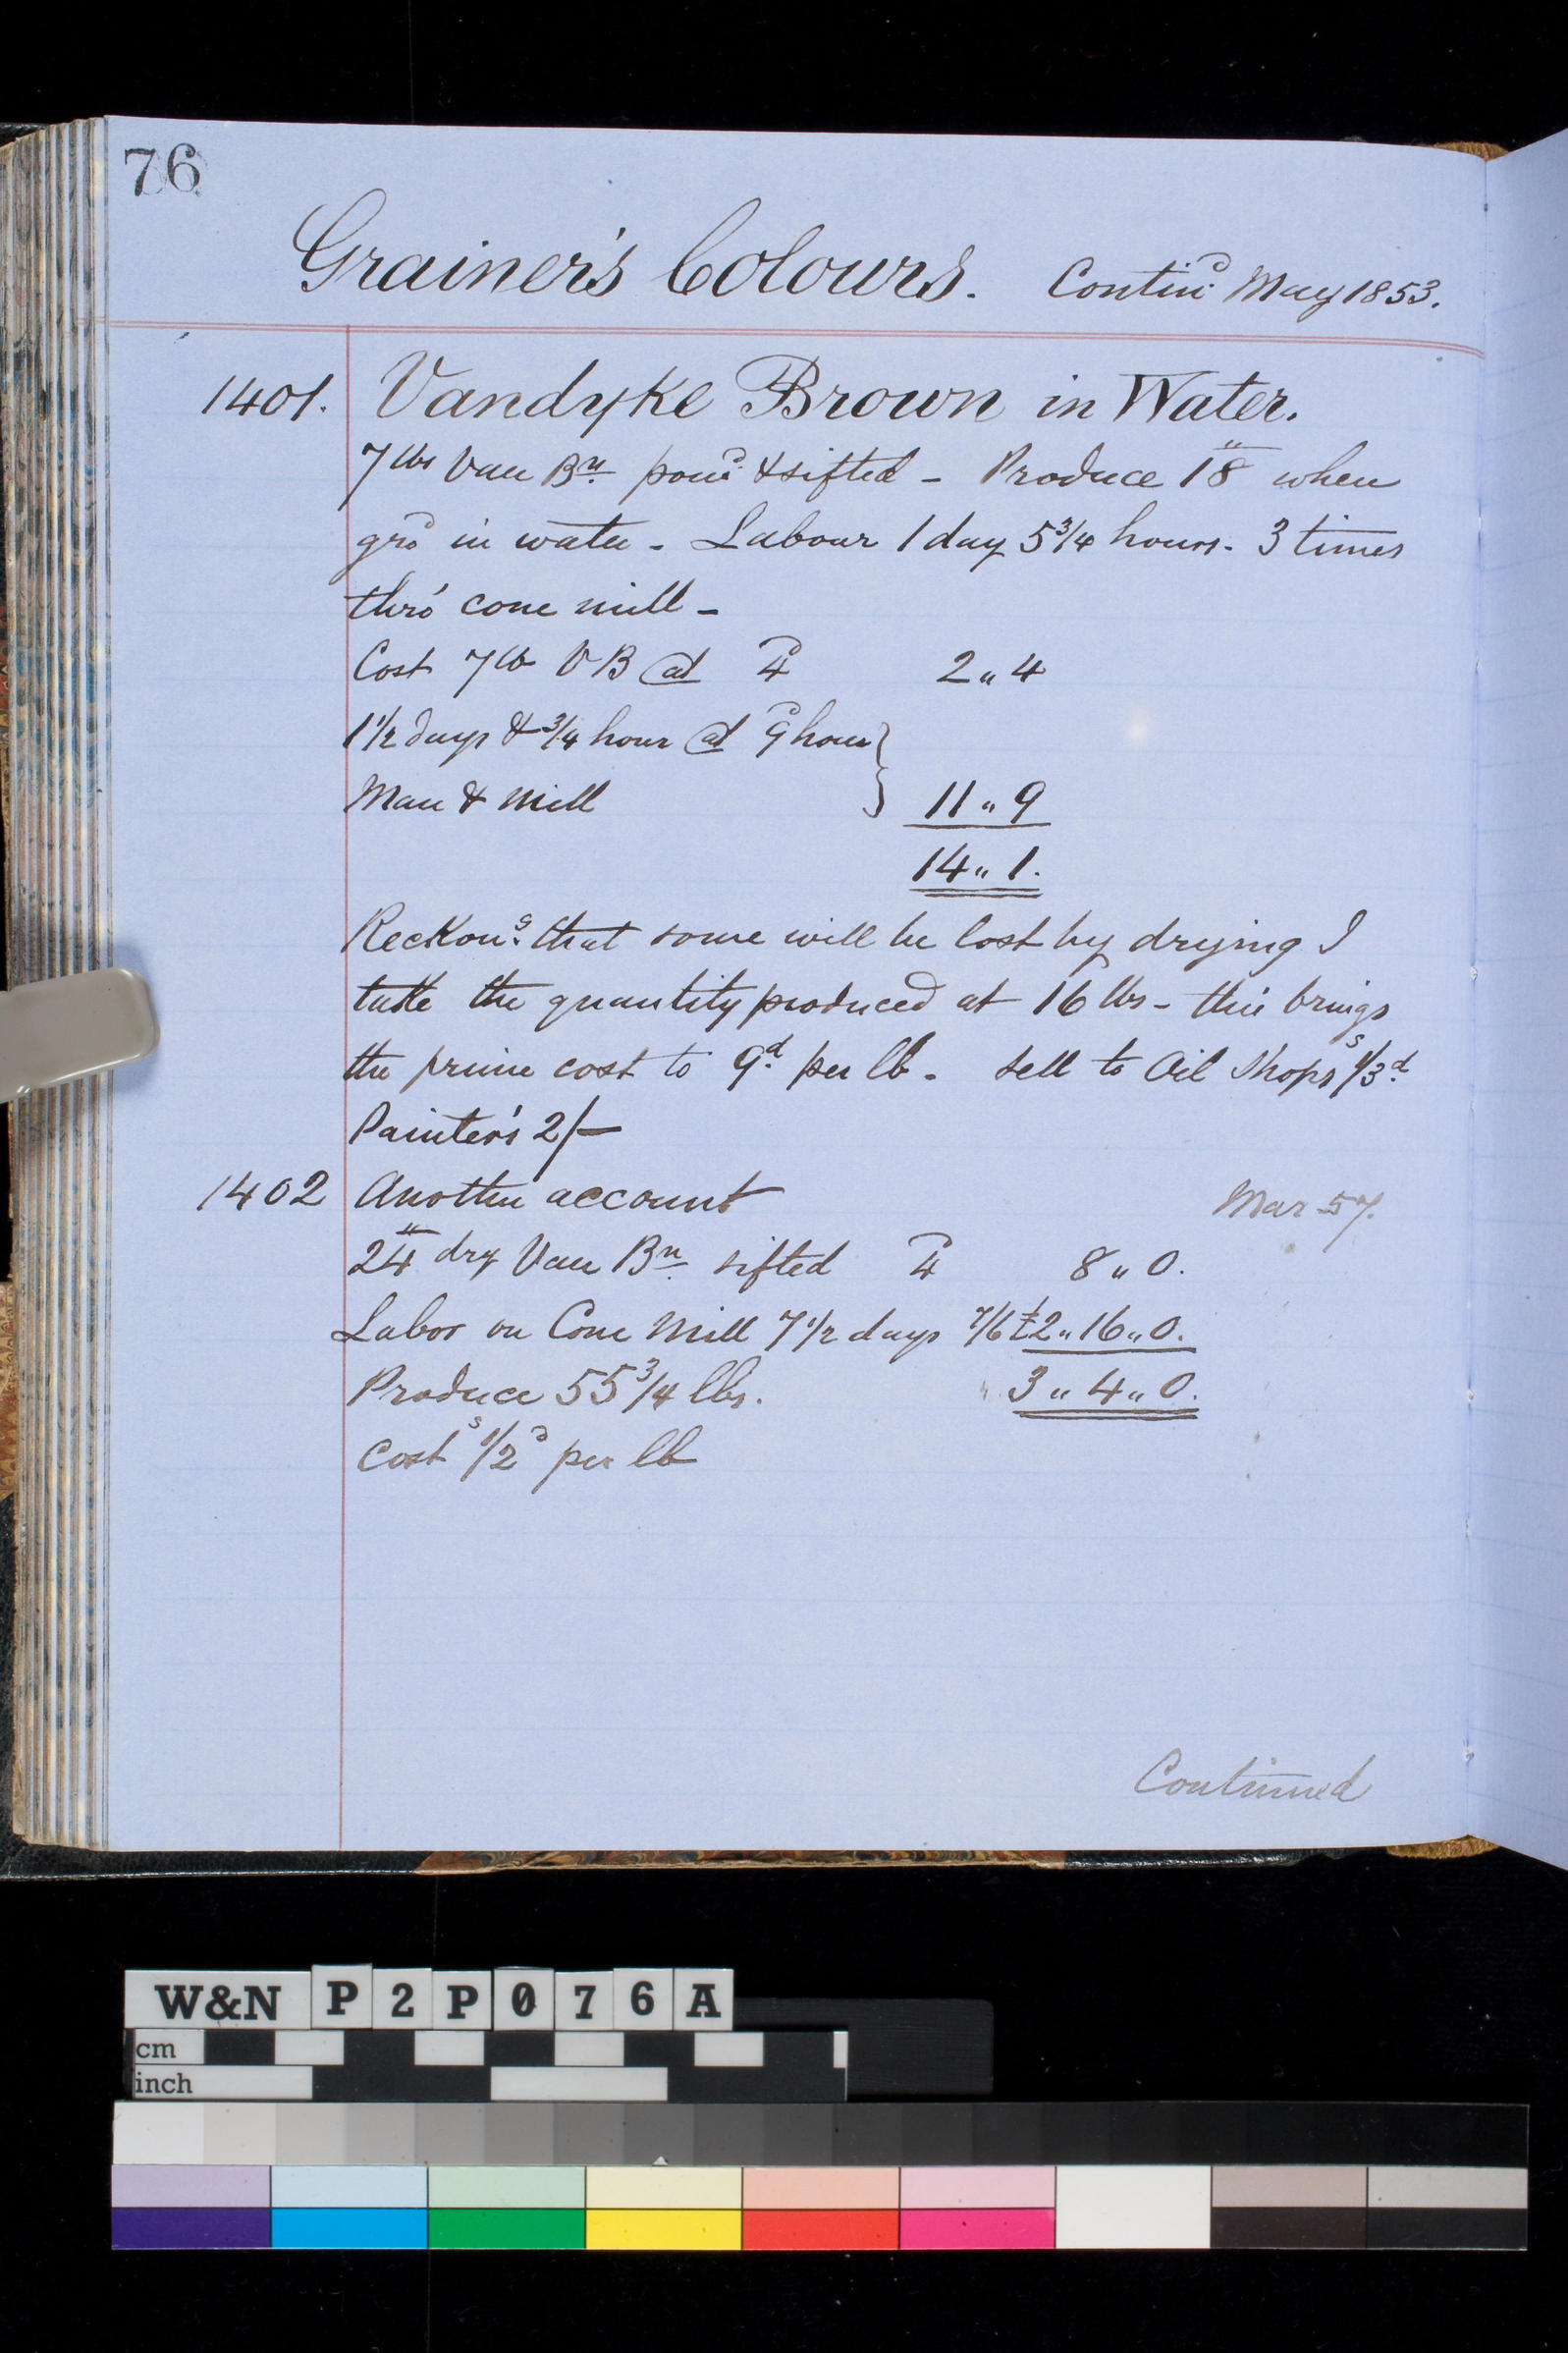 76
Grainer's Colours. Contin.d May 1853.
1401. Vandyke Brown in Water.
7 lbs Van Bn. poun.d & sifted - Produce 18 lb when
gr.d in water - Labour 1 day 5 3/4 hours - 3 times
thro' cone mill -
Cost 7 lb VB at 4d 2 " 4
1 1/2 days & 3/4 hour at 9d hour }
Man & Mill 11 " 9
14 " 1.
Reckon.g that some will be lost by drying I
take the quantity produced at 16 lbs - this brings
the prime cost to 9d. per lb - sell to Oil Shops 1s/3d.
Painter's 2/-
1402 Another account Mar 57.
24 lb dry Van Bn. sifted 4d 8 " 0.
Labor on Cone Mill 7 1/2 days 7/6 £2 " 16 " 0.
Produce 55 3/4 lbs. 3 " 4 " 0.
Cost 1s/2d per lb
Continued
W&N P2P076A
cm
inch